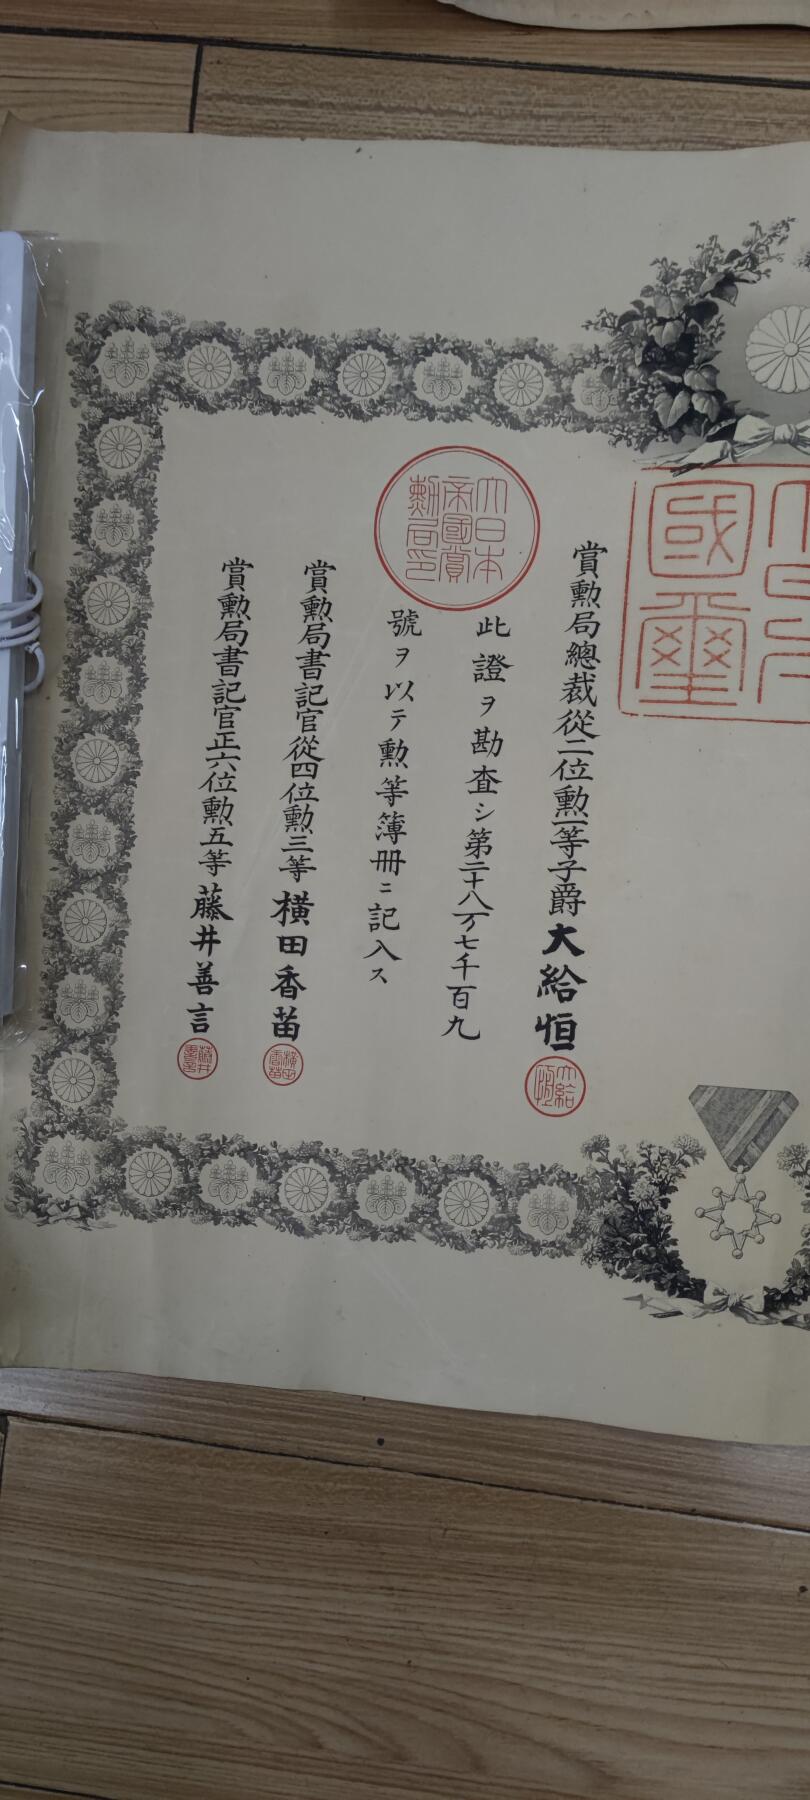 賞勲局總裁從二位勲一等子爵大給恒
大給恒
大日本帝國賞勲局印
此證ヲ勘査シ第二十八万七千百九
號ヲ以テ勲等簿冊ニ記入ス
賞勲局書記官從四位勲三等橫田香苗
橫田香苗
賞勲局書記官正六位勲五等藤井善言
藤井善言
國璽